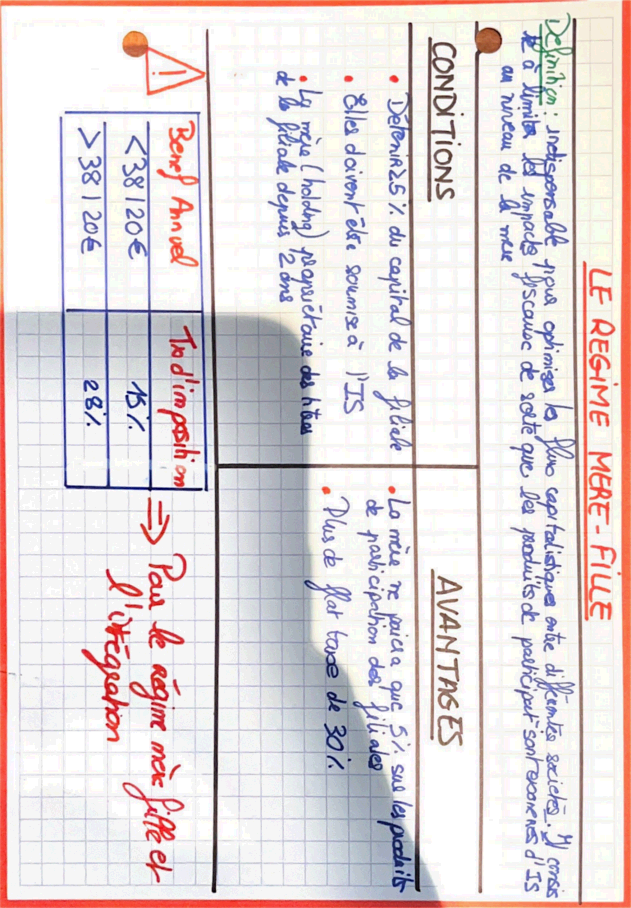 LE REGIME MERE-FILLE
Définition : indispensable pour optimiser les flux capitalistiques entre différentes sociétés. Il consis
te à limiter les impacts fiscaux de sorte que les produits de participat° sont exonérés d'IS
au niveau de la mère
CONDITIONS
• Détenir 25% du capital de la filiale
• Elles doivent être soumise à l'IS
• La mère (holding) propriétaire des titres
de la filiale depuis 2 ans
AVANTAGES
• La mère ne paiera que 5% sur les produits
de participation des filiales
• Plus de flat taxe de 30%
!
Benef Annuel Tx d'imposition
<38120€ 15%
>38120€ 28%
=> Pour le régime mère fille et
l'intégration